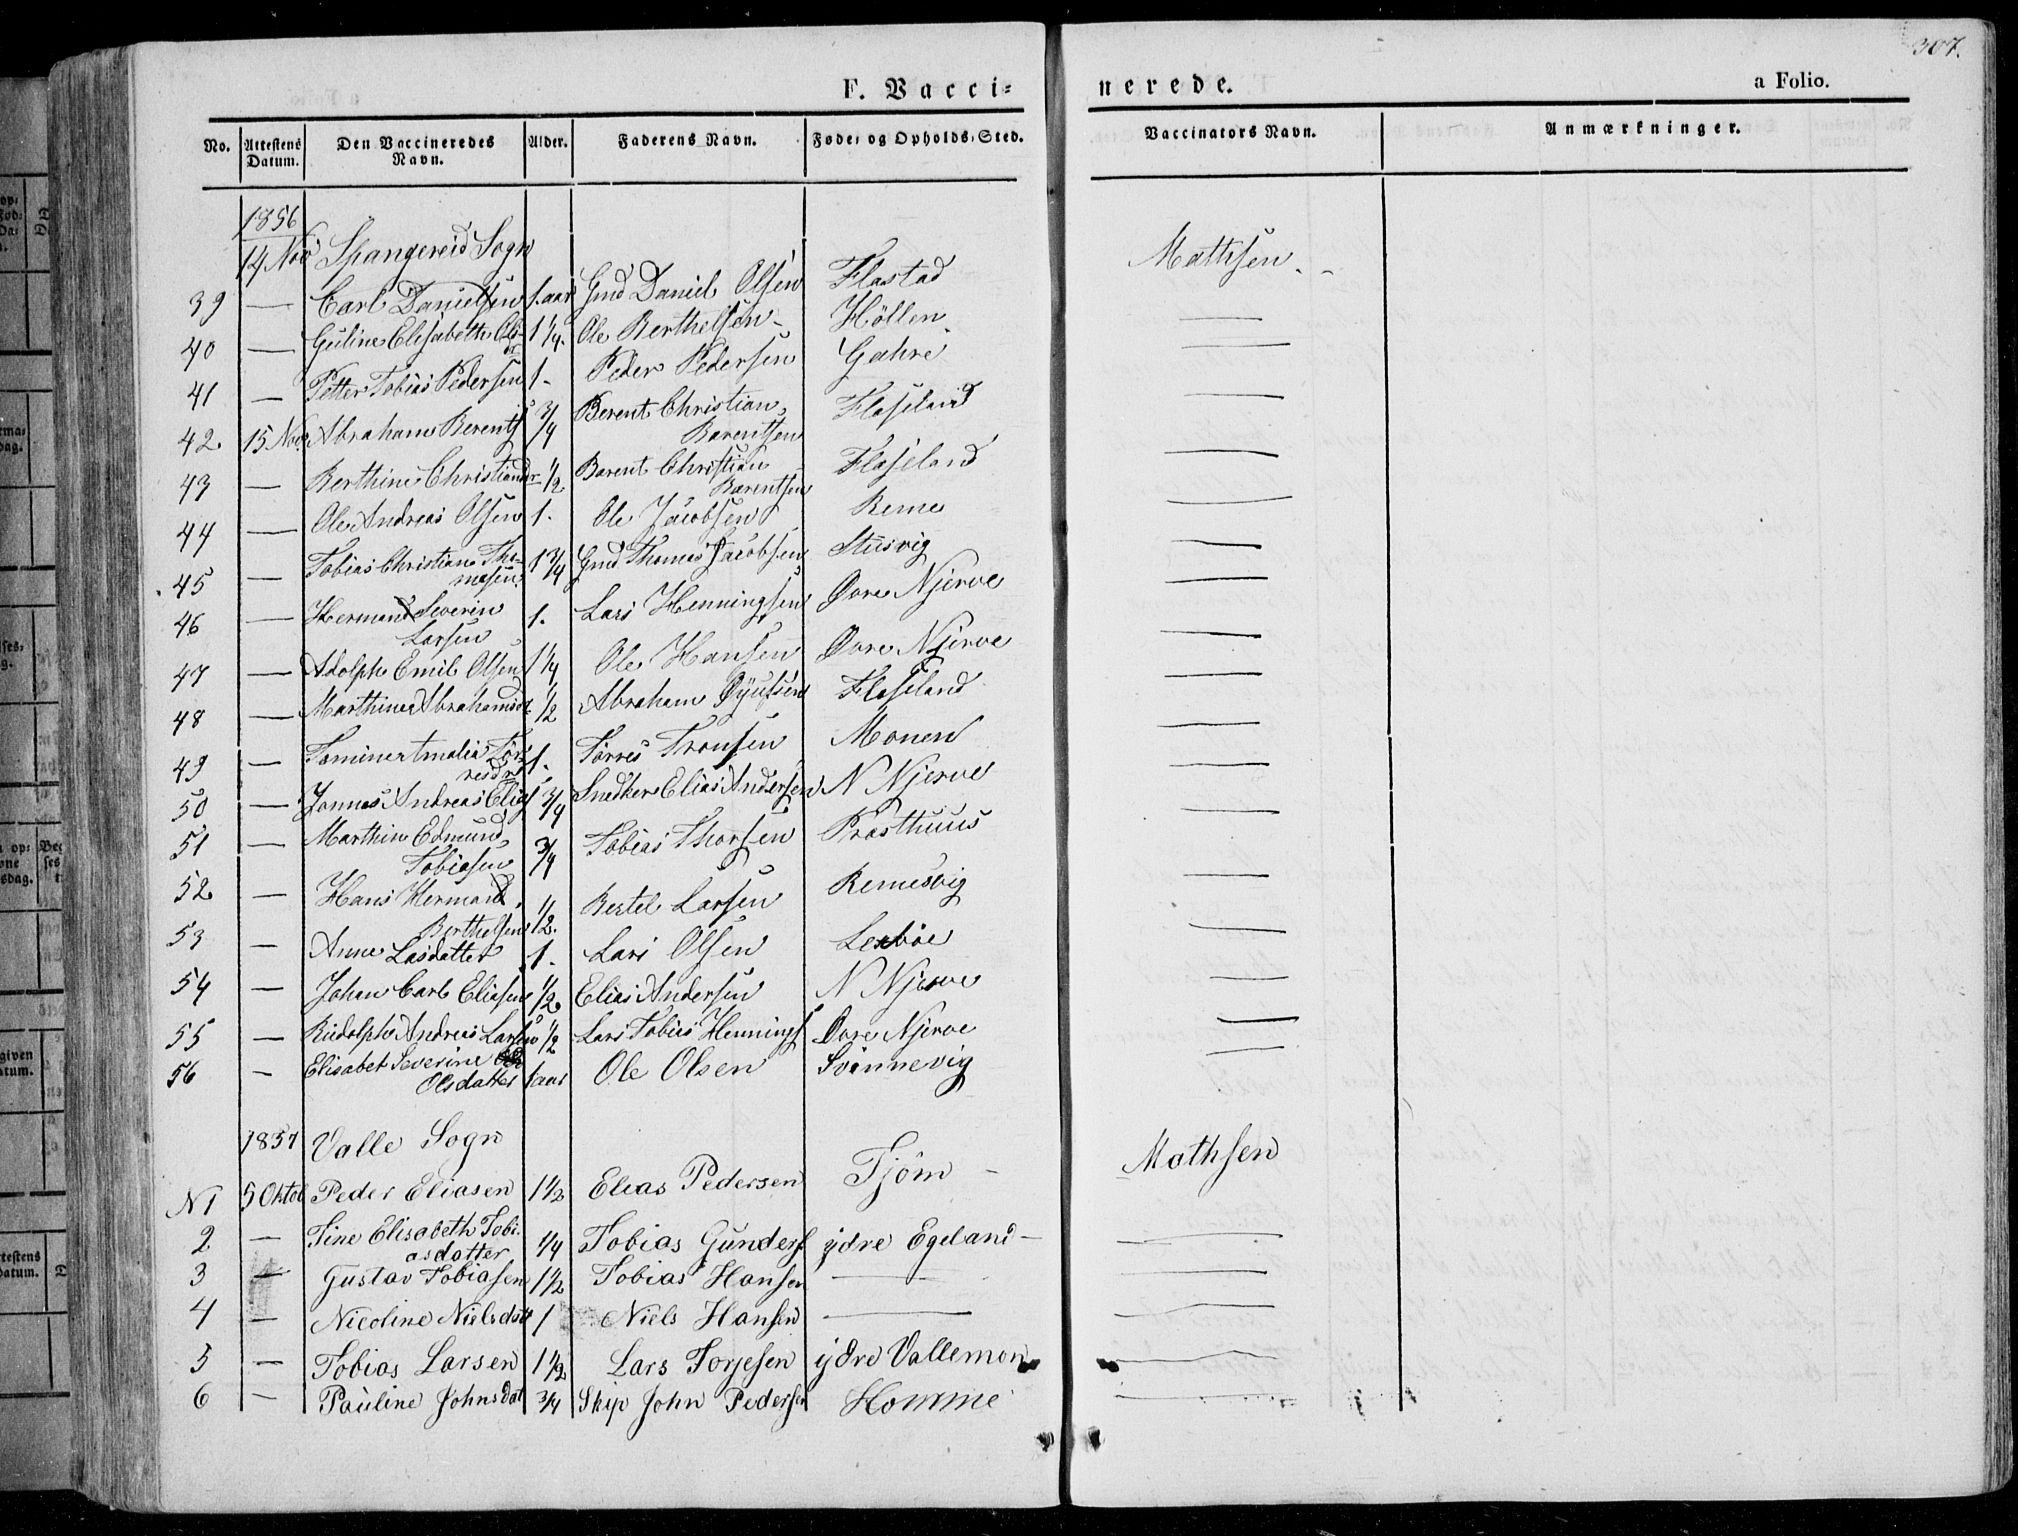 307.
F. Vacci=
nerede.
a Folio.
No. Attestens Datum. Den Vaccineredes Navn. Alder. Faderens Navn. Føde= og Opholds=Sted. Vaccinators Navn. Anmærkninger.
1856
14 Nov Spangereid Sogn Mathsen.
39 — Carl Danielsen 1.aar Gmd Daniel Olsen Flastad —
40 — Guline Elisabeth Ols-
dr 1 1/4. Ole Berthelsen Höllen —
41 — Petter Tobias Pedersen 1. Peder Pedersen Gahre —
42. 15 Nov. Abraham Berents 3/4 Berent Christian
Barentsen Flaseland —
43 — Berthine Christiandr 1/2 Barent Christian
Barentsen Flaseland —
44 — Ole Andreas Olsen 1. Ole Jacobsen Reme —
45 — Tobias Christian Tho-
masen 1 3/4 Gmd Thomas Jacobsen Stusvig —
46 — Hermand Severin
Larsen 1. Lars Henningsen Övre Njerve —
47 — Adolph Emil Olsen 1 1/4 Ole Hansen Övre Njerve —
48 — Marthine Abrahamsdr 1/2 Abraham Flaseland —
49 — Tomine Amalia Tör-
resdr 1. Törres Tronsen Monen —
50 — Jonnas Andreas Elias 1 3/4 Snedker Elias Andersen N Njerve —
51 — Marthin Edmund
Tobiasen 3/4 Tobias Thorsen Præsthuus —
52 — Hans Hermand
Berthelsen 1/2. Bertel Larsen Remesvig —
53 — Anne Lasdatter 1. Lars Olsen Lexböe —
54 — Johan Carl Eliasen 1/2. Elias Andersen N Njerve —
55 — Rudolph Andreas Larsen 1/2 Lars Tobias Hennings Övre Njerve —
56 — Elisabet Severine
Olsdatter 1 aar Ole Olsen Svinnevig —
1857 Valle Sogn Mathsen
N 1 5 Oktob Peder Eliasen 1 1/2 Elias Pedersen Tjöm —
2 — Tine Elisabeth Tobi-
asdatter 1/4 Tobias Gunders ydre Egeland —
3 — Gustav Tobiasen 1 1/2 Tobias Hansen — —
4 — Nicoline Nielsdat 1 Niels Hansen — —
5 — Tobias Larsen 1 1/2 Lars Torjesen ydre Vallemon —
6 — Pauline Johnsdat 3/4 Skip John Pedersen Homme —